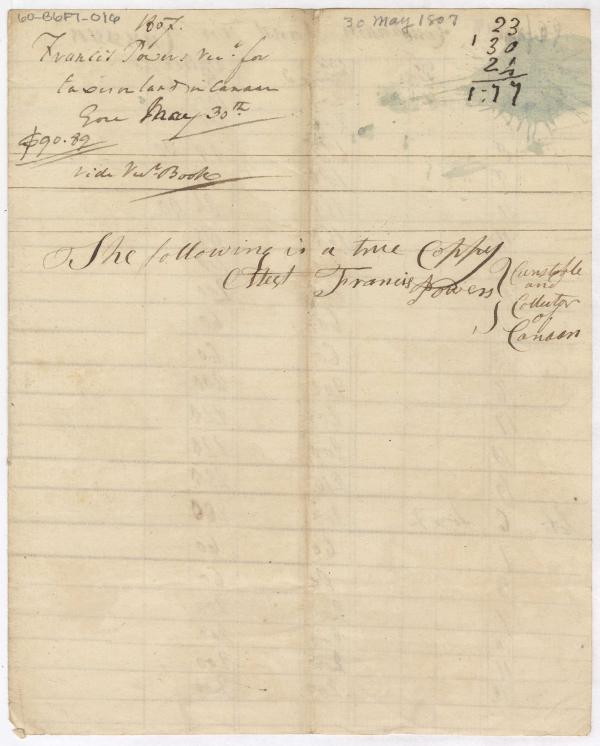 60-B6F1-016
1807.
Francis Powers Rec.t for
taxes on land in Canaan
Gore May 30th
$90.89
vide Rec.t Book
30 May 1807
23
1 30
24
1:77
The following is a true Coppy
Attest Francis Powers
Cunstable
and
Collector
of
Canaan